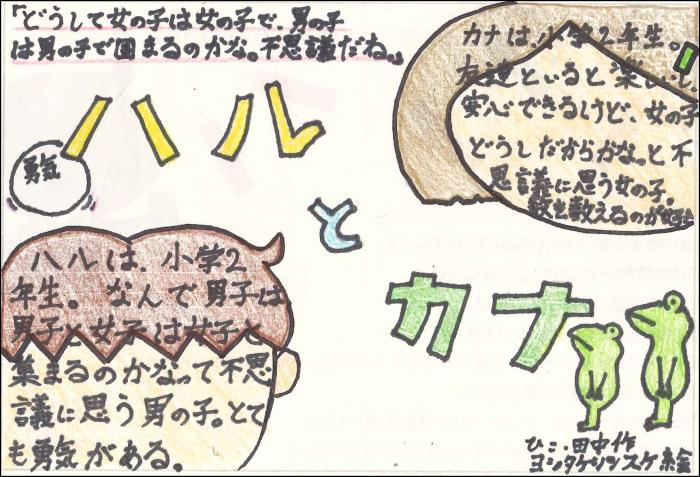 「どうして女の子は女の子で、男の子
は男の子で固まるのかな。不思議だね。」
カナは、小学2年生。
友達といると楽しいし
安心できるけど、女の子
どうしだからかな。と不
思議に思う女の子。
数を数えるのが好き
ハル
勇気
と
カナ
ハルは、小学2
年生。なんで男子は
男子と女子は女子と
集まるのかなって不思
議に思う男の子。とて
も勇気がある。
ひこ・田中作
ヨシタケシンスケ絵